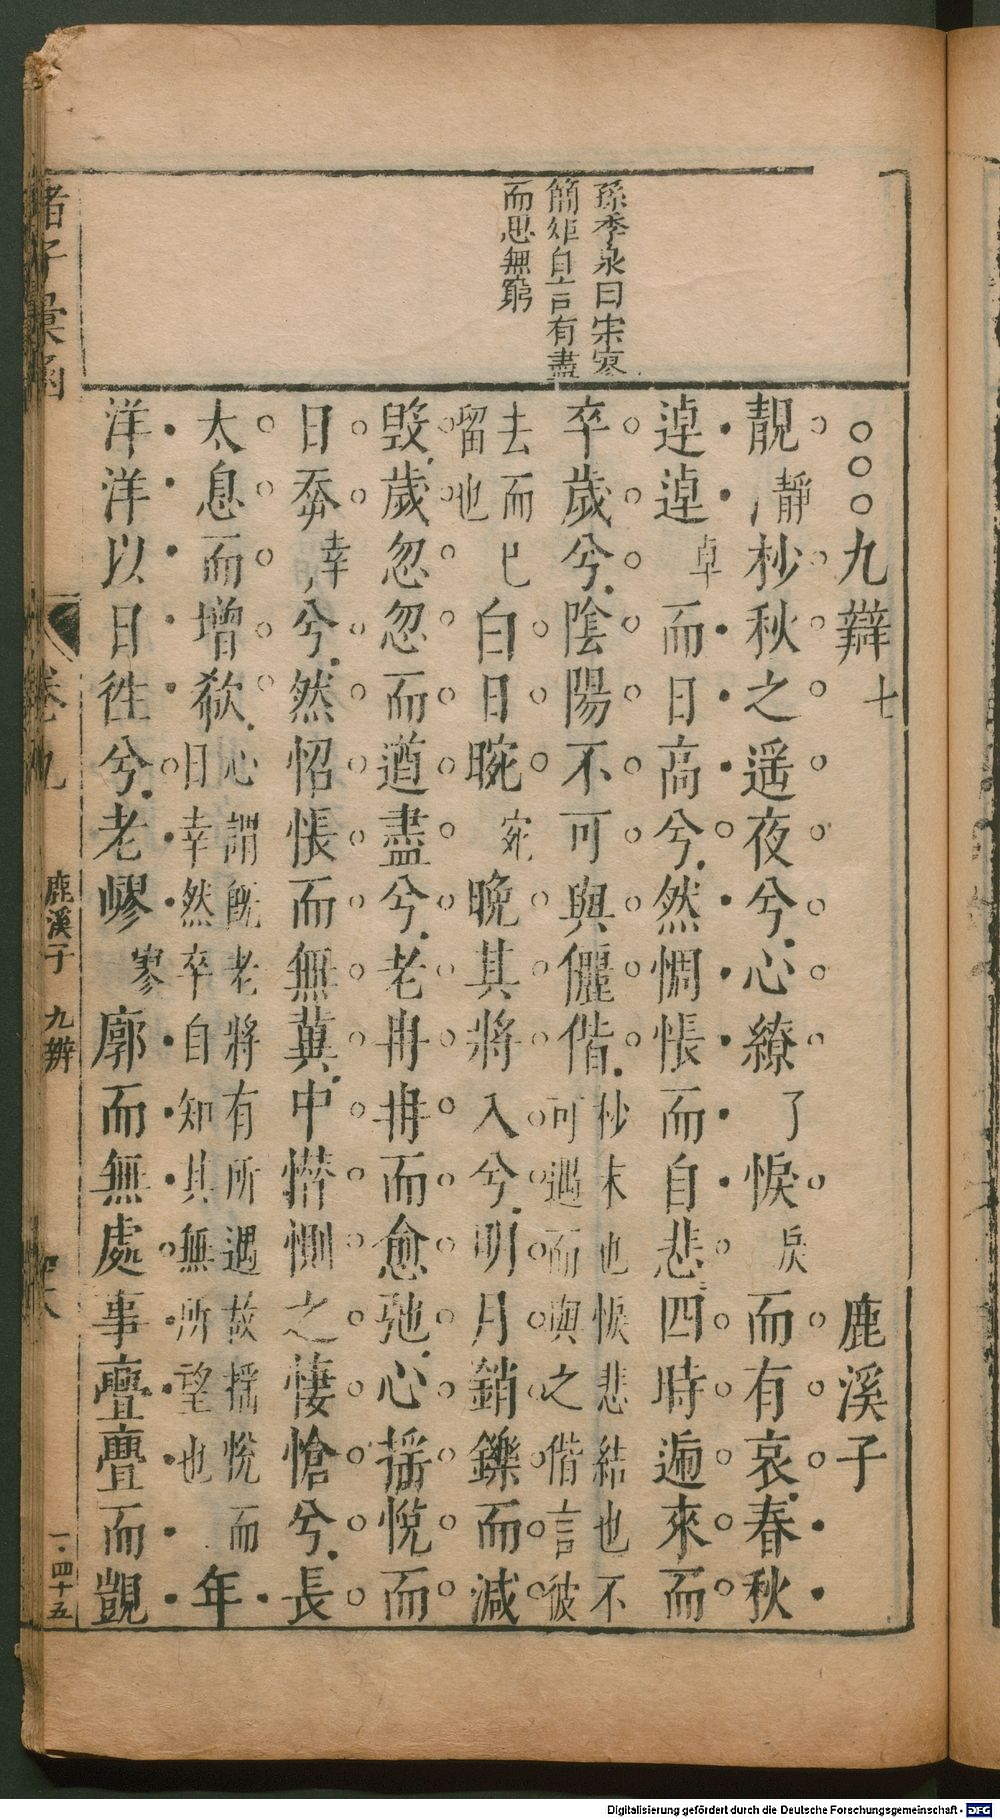 孫季泉曰宋寥
簡矩自言有盡
而思無窮
○○○九辯七 鹿溪子
靚靜杪秋之遥夜兮心繚了悷戾而有哀春秋
逴逴卓而日高兮然惆悵而自悲四時遞來而
卒歲兮陰陽不可與儷偕杪末也悷悲結也不可遇而與之偕言彼
去而已留也白日晼宛晚其將入兮明月銷鑠而減
毁歲忽忽而遒盡兮老冉冉而愈弛心摇悅而
日㚑幸兮然怊悵而無冀中憯惻之悽愴兮長
太息而增欷心謂既老將有所遇故摇悅而日幸然卒自知其無所望也年
洋洋以日徃兮老嵺寥廓而無處事亹亹而覬
諸子彙函 卷九 鹿溪子 九辯 一·四十五
Digitalisierung gefördert durch die Deutsche Forschungsgemeinschaft - DFG